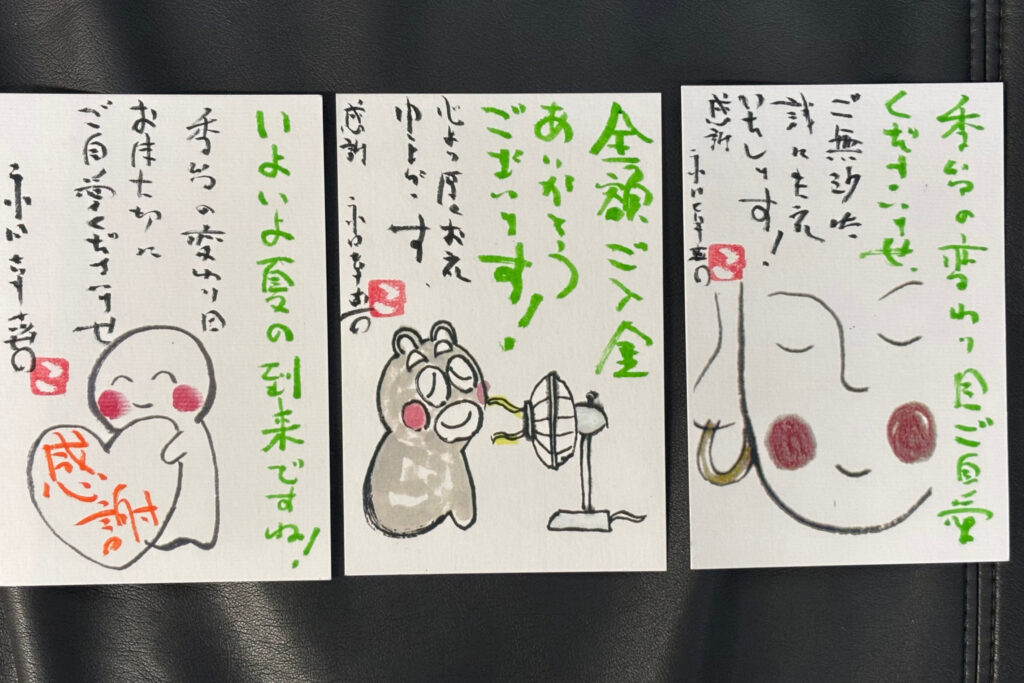 いよいよ夏の到来ですね!
季節の変わり目
お体大切に
ご自愛くださいませ
感謝。
全額ご入金
ありがとう
ございます!
心より厚くお礼
申し上げます
感謝
季節の変わり目ご自愛
くださいませ、
ご無沙汰
誠に失礼
いたします!
感謝